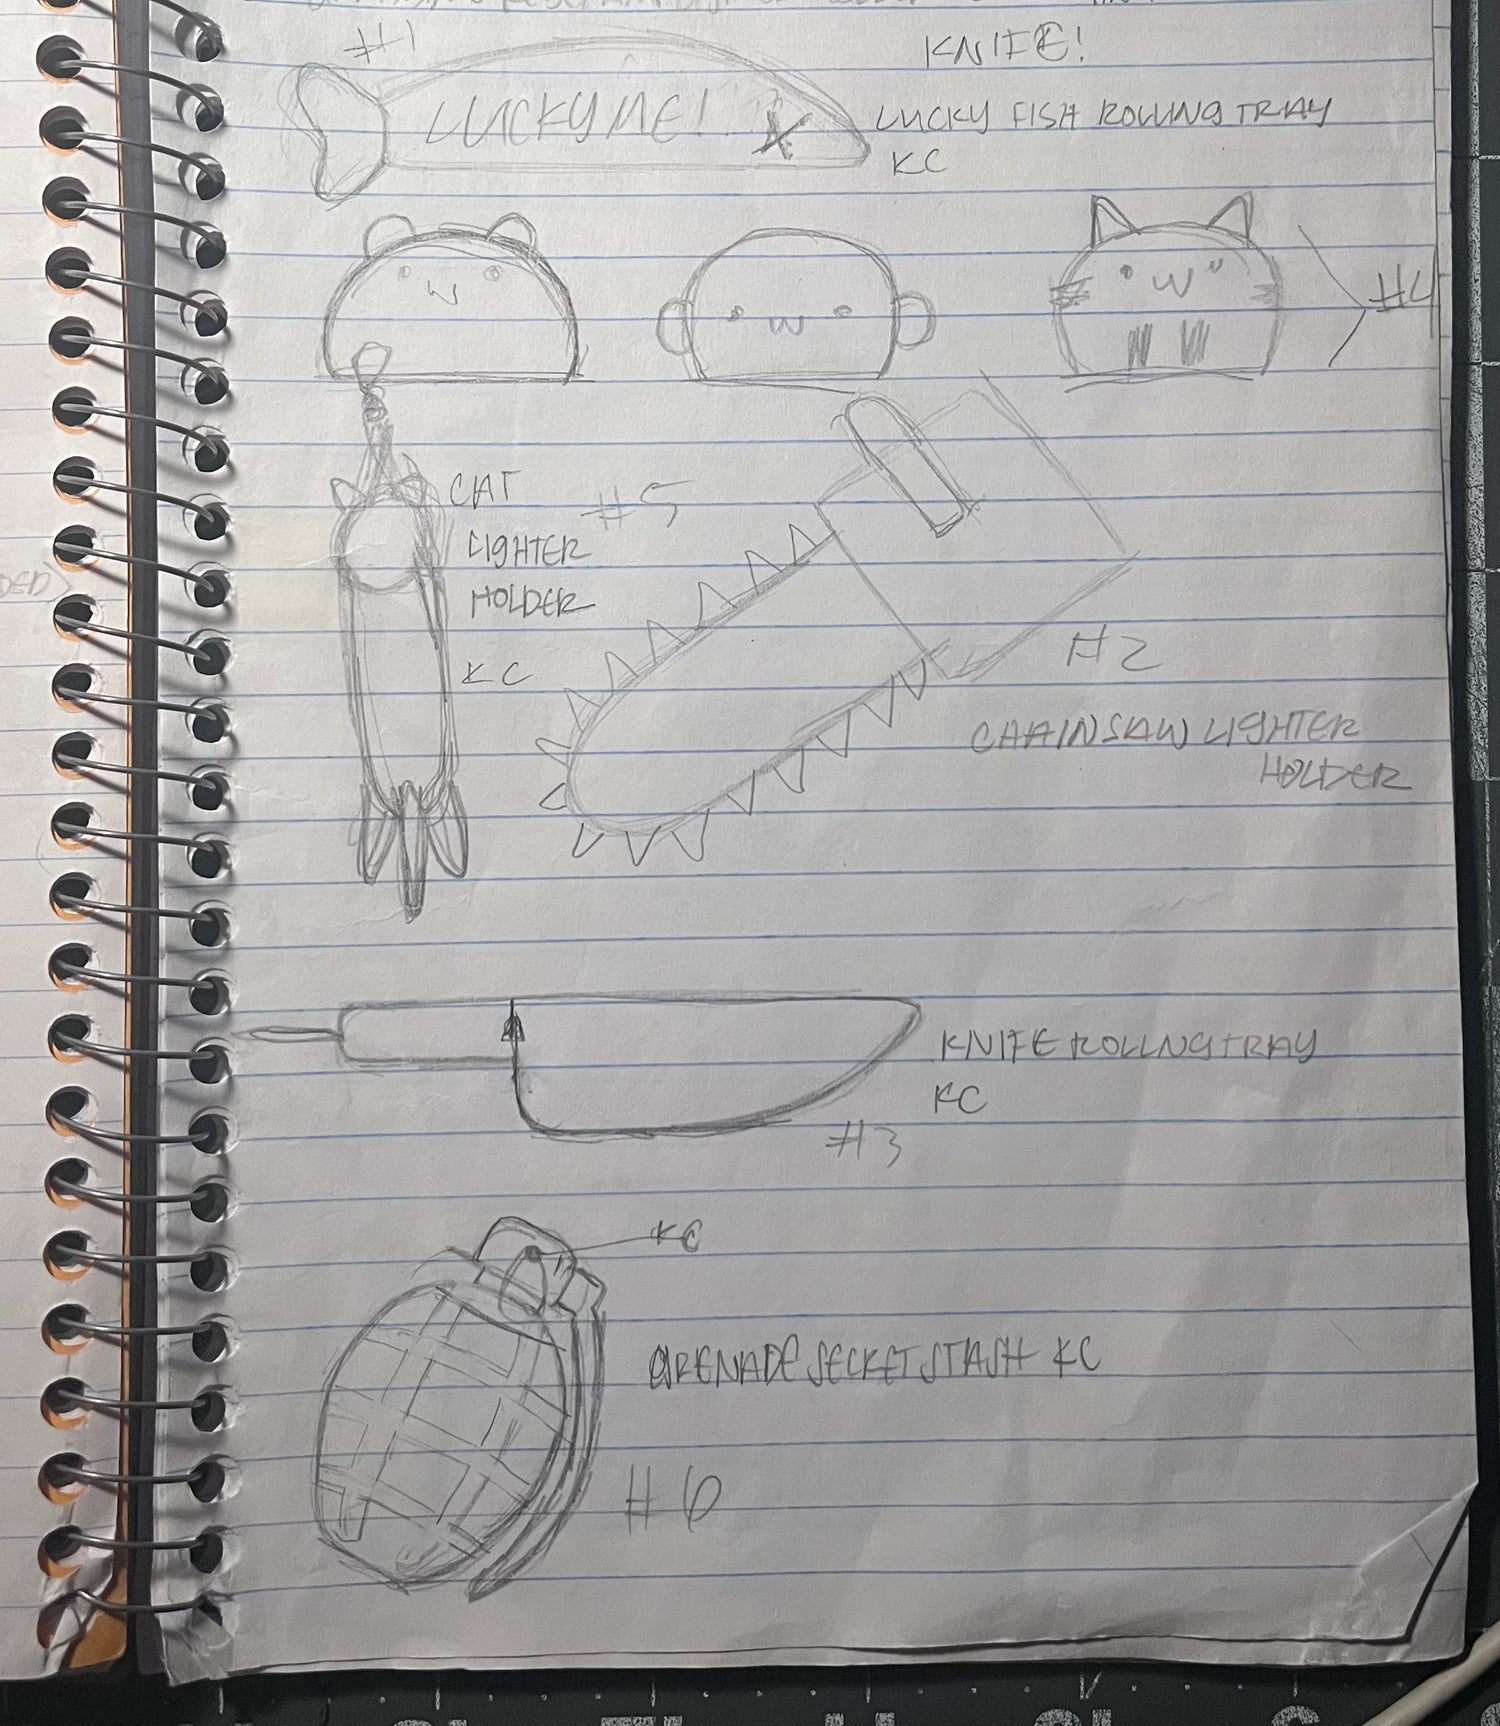 #1
KNIFE!
LUCKY ME!
LUCKY FISH ROLLING TRAY
KC
#4
CAT
LIGHTER
HOLDER
KC
#5
#2
CHAINSAW LIGHTER
HOLDER
KNIFE ROLLNG TRAY
KC
#3
KC
GRENADE SECKET STASH KC
#6